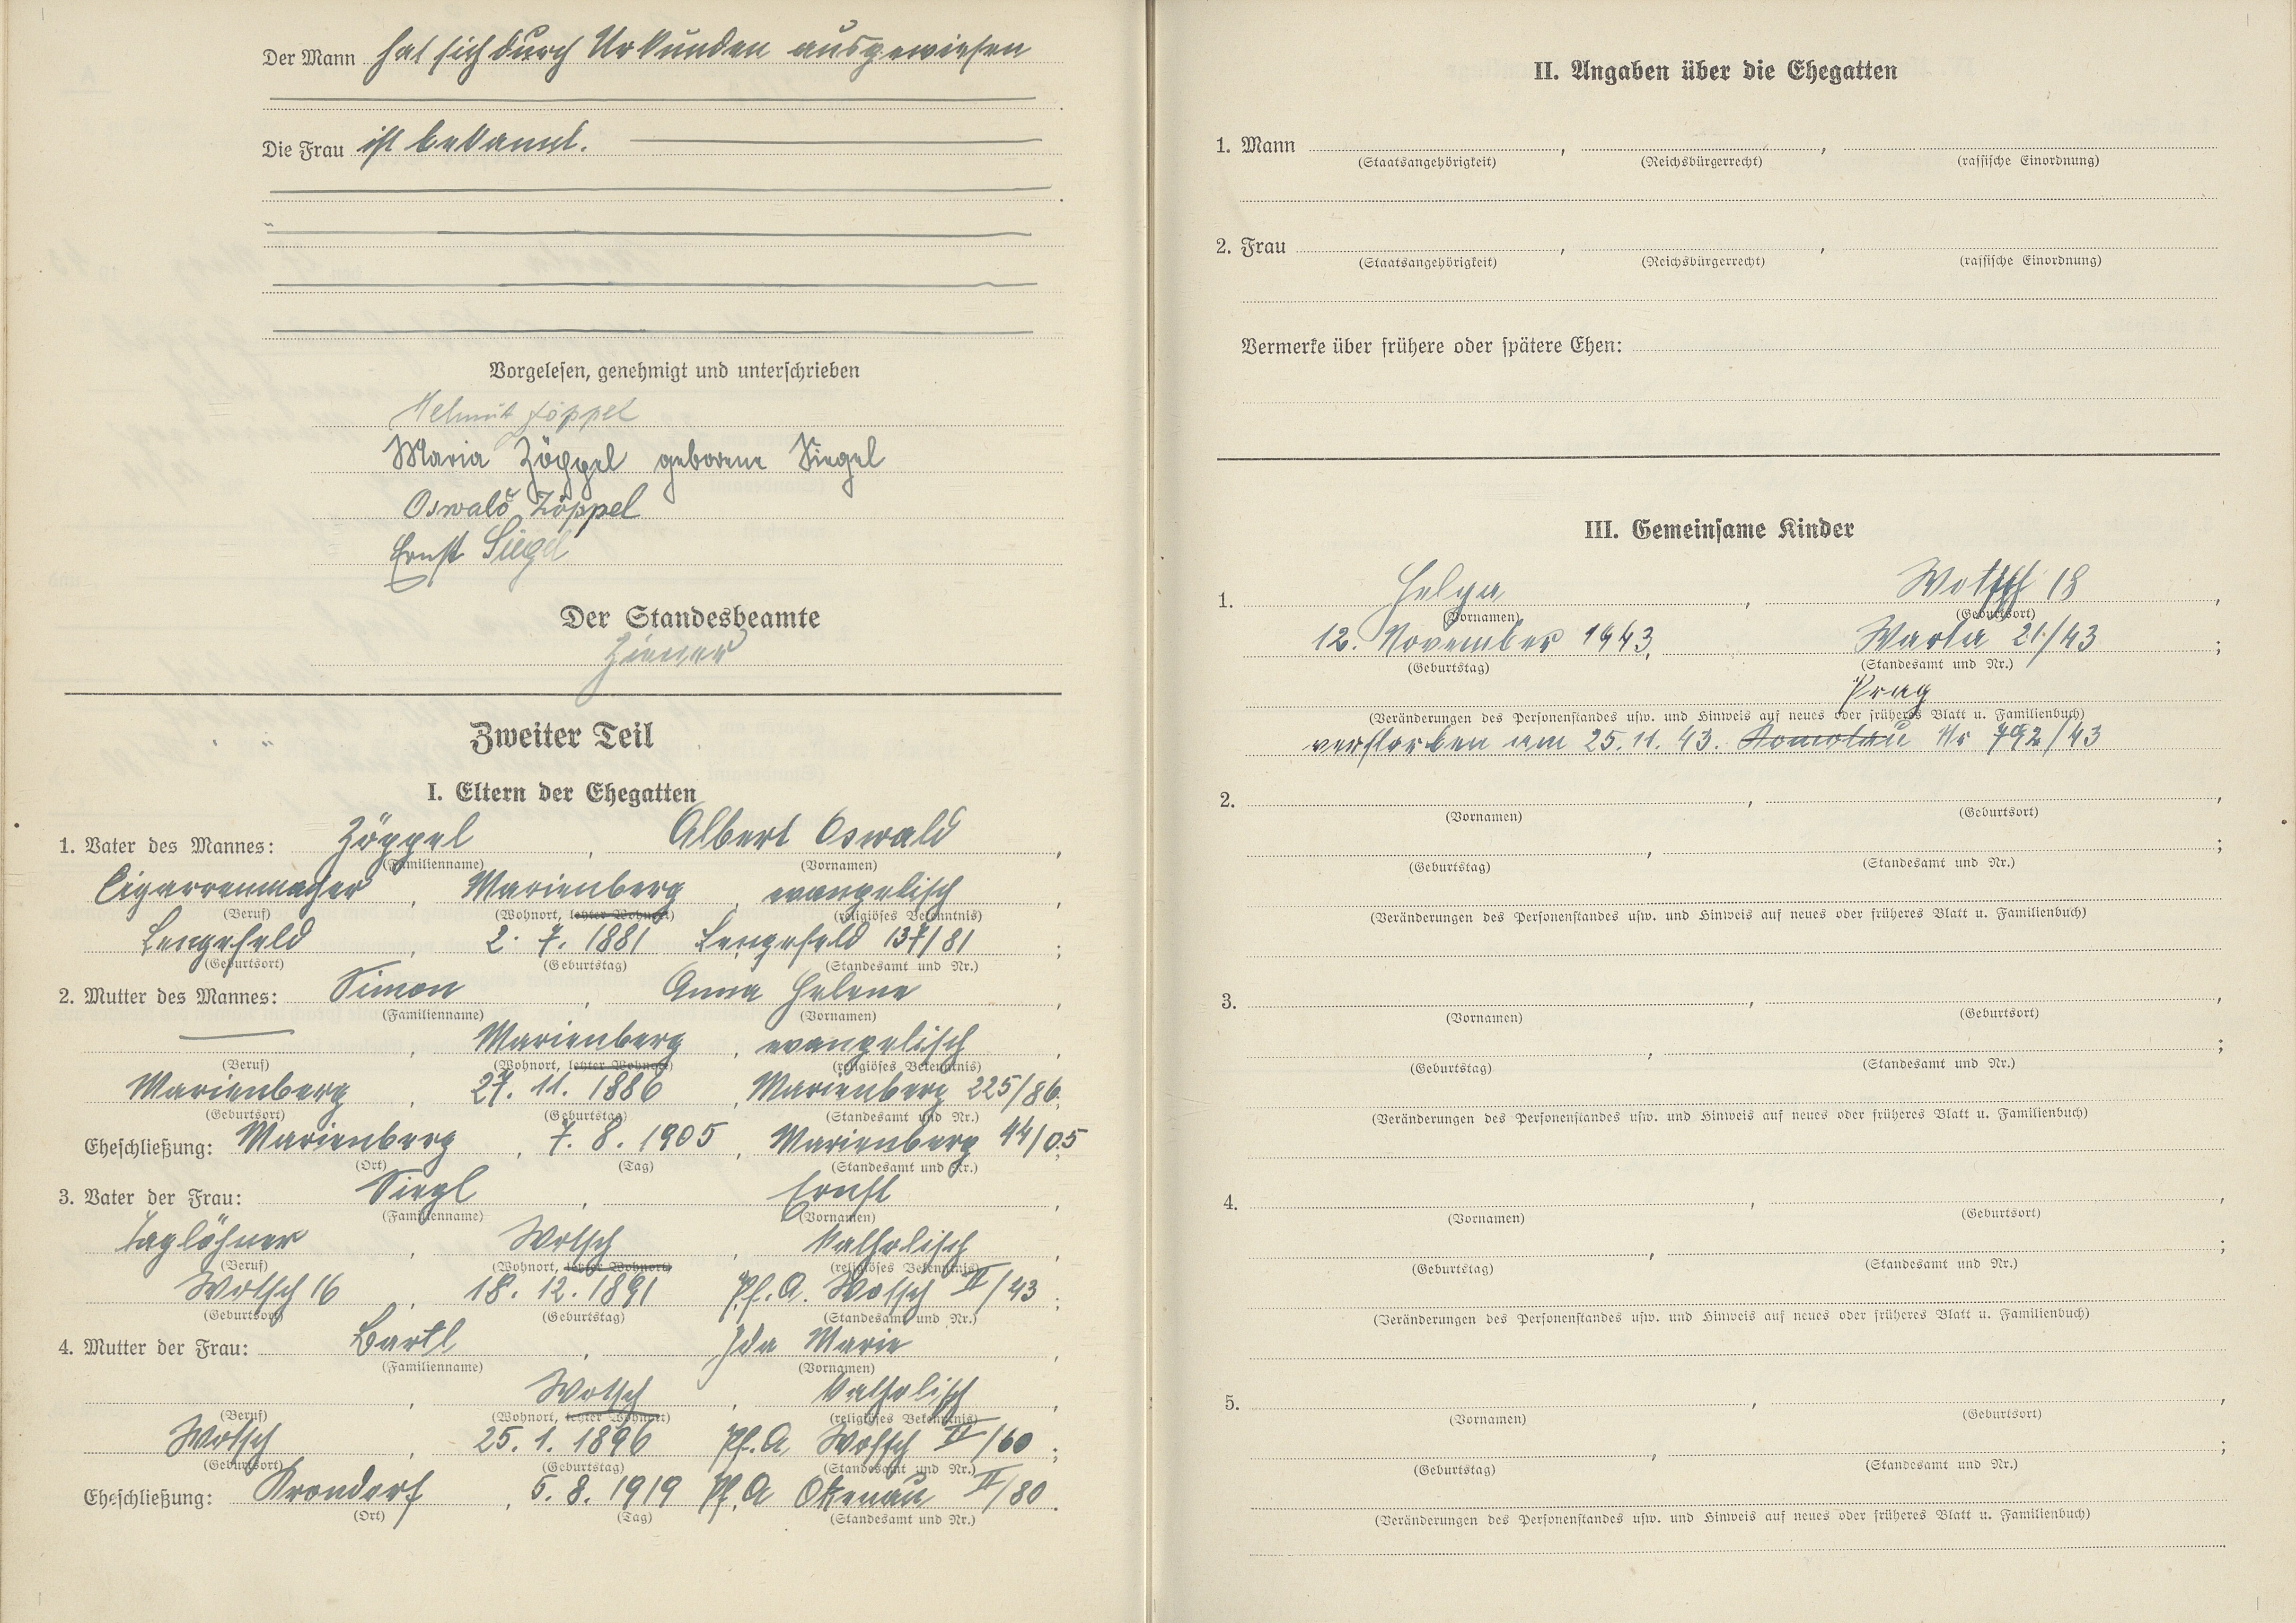 Der Mann hat sich durch Urkunden ausgewiesen
Die Frau ist bekannt.
Vorgelesen, genehmigt und unterschrieben
Helmut Zöppel
Maria Zöppel geborene Siegel
Oswald Zöppel
Ernst Siegel
Der Standesbeamte
Ziener
Zweiter Teil
I. Eltern der Ehegatten
1. Vater des Mannes: Zöppel, Albert Oswald,
(Familienname) (Vornamen)
Cigarrenmacher, Marienberg, evangelisch,
(Beruf) (Wohnort, letzter Wohnort) (religiöses Bekenntnis)
Lengefeld, 2. 7. 1881 Lengefeld 137/81;
(Geburtsort) (Geburtstag) (Standesamt und Nr.)
2. Mutter des Mannes: Simon, Anna Helene,
(Familienname) (Vornamen)
—, Marienberg, evangelisch,
(Beruf) (Wohnort, letzter Wohnort) (religiöses Bekenntnis)
Marienberg, 27. 11. 1886, Marienberg 225/86;
(Geburtsort) (Geburtstag) (Standesamt und Nr.)
Eheschließung: Marienberg, 7. 8. 1905, Marienberg 44/05
(Ort) (Tag) (Standesamt und Nr.)
3. Vater der Frau: Siegl, Ernst,
(Familienname) (Vornamen)
Taglöhner, Wotsch, katholisch,
(Beruf) (Wohnort, letzter Wohnort) (religiöses Bekenntnis)
Wotsch 16, 18. 12. 1891 Pf. A. Wotsch II/43;
(Geburtsort) (Geburtstag) (Standesamt und Nr.)
4. Mutter der Frau: Bartl, Ida Marie,
(Familienname) (Vornamen)
, Wotsch, katholisch,
(Beruf) (Wohnort, letzter Wohnort) (religiöses Bekenntnis)
Wotsch, 25. 1. 1896 Pf. A Wotsch II/60;
(Geburtsort) (Geburtstag) (Standesamt und Nr.)
Eheschließung: Krondorf, 5. 8. 1919 Pf. A Okenau II/80.
(Ort) (Tag) (Standesamt und Nr.)
II. Angaben über die Ehegatten
1. Mann , ,
(Staatsangehörigkeit) (Reichsbürgerrecht) (rassische Einordnung)
2. Frau , ,
(Staatsangehörigkeit) (Reichsbürgerrecht) (rassische Einordnung)
Vermerke über frühere oder spätere Ehen:
III. Gemeinsame Kinder
1. Helga, Wotsch 18,
(Vornamen) (Geburtsort)
12. November 1943, Warta 21/43;
(Geburtstag) (Standesamt und Nr.)
Prag
(Veränderungen des Personenstandes usw. und Hinweis auf neues oder früheres Blatt u. Familienbuch)
verstorben am 25. 11. 43. Komotau Nr 792/43
2. , ,
(Vornamen) (Geburtsort)
, ;
(Geburtstag) (Standesamt und Nr.)
(Veränderungen des Personenstandes usw. und Hinweis auf neues oder früheres Blatt u. Familienbuch)
3. , ,
(Vornamen) (Geburtsort)
, ;
(Geburtstag) (Standesamt und Nr.)
(Veränderungen des Personenstandes usw. und Hinweis auf neues oder früheres Blatt u. Familienbuch)
4. , ,
(Vornamen) (Geburtsort)
, ;
(Geburtstag) (Standesamt und Nr.)
(Veränderungen des Personenstandes usw. und Hinweis auf neues oder früheres Blatt u. Familienbuch)
5. , ,
(Vornamen) (Geburtsort)
, ;
(Geburtstag) (Standesamt und Nr.)
(Veränderungen des Personenstandes usw. und Hinweis auf neues oder früheres Blatt u. Familienbuch)